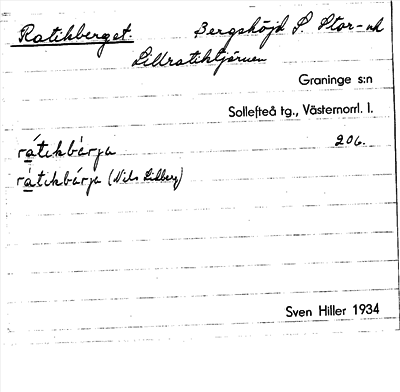 Ratikberget. Bergshöjd S. Stor- och
Lillratiktjärnen
Graninge s:n
Sollefteå tg., Västernorrl. l.
rátikbárja 206.
rátikbárja (Nils Lidberg)
Sven Hiller 1934